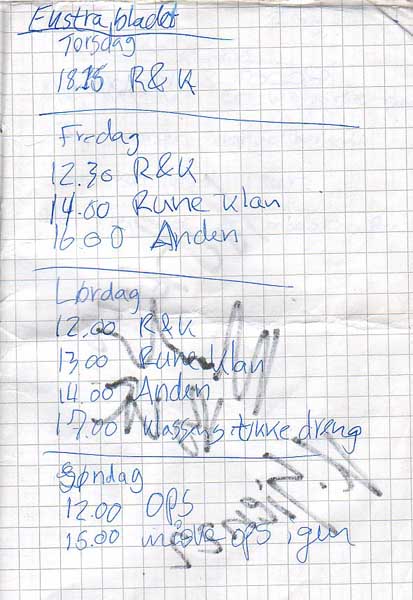 Ekstra bladet
Torsdag
18.15 R&K
Fredag
12.30 R&K
14.00 Rune Klan
16.00 Anden
Lørdag
12.00 R&K
13.00 Rune Klan
14.00 Anden
17.00 Klassens tykke dreng
Søndag
12.00 OPS
15.00 måske OPS igen